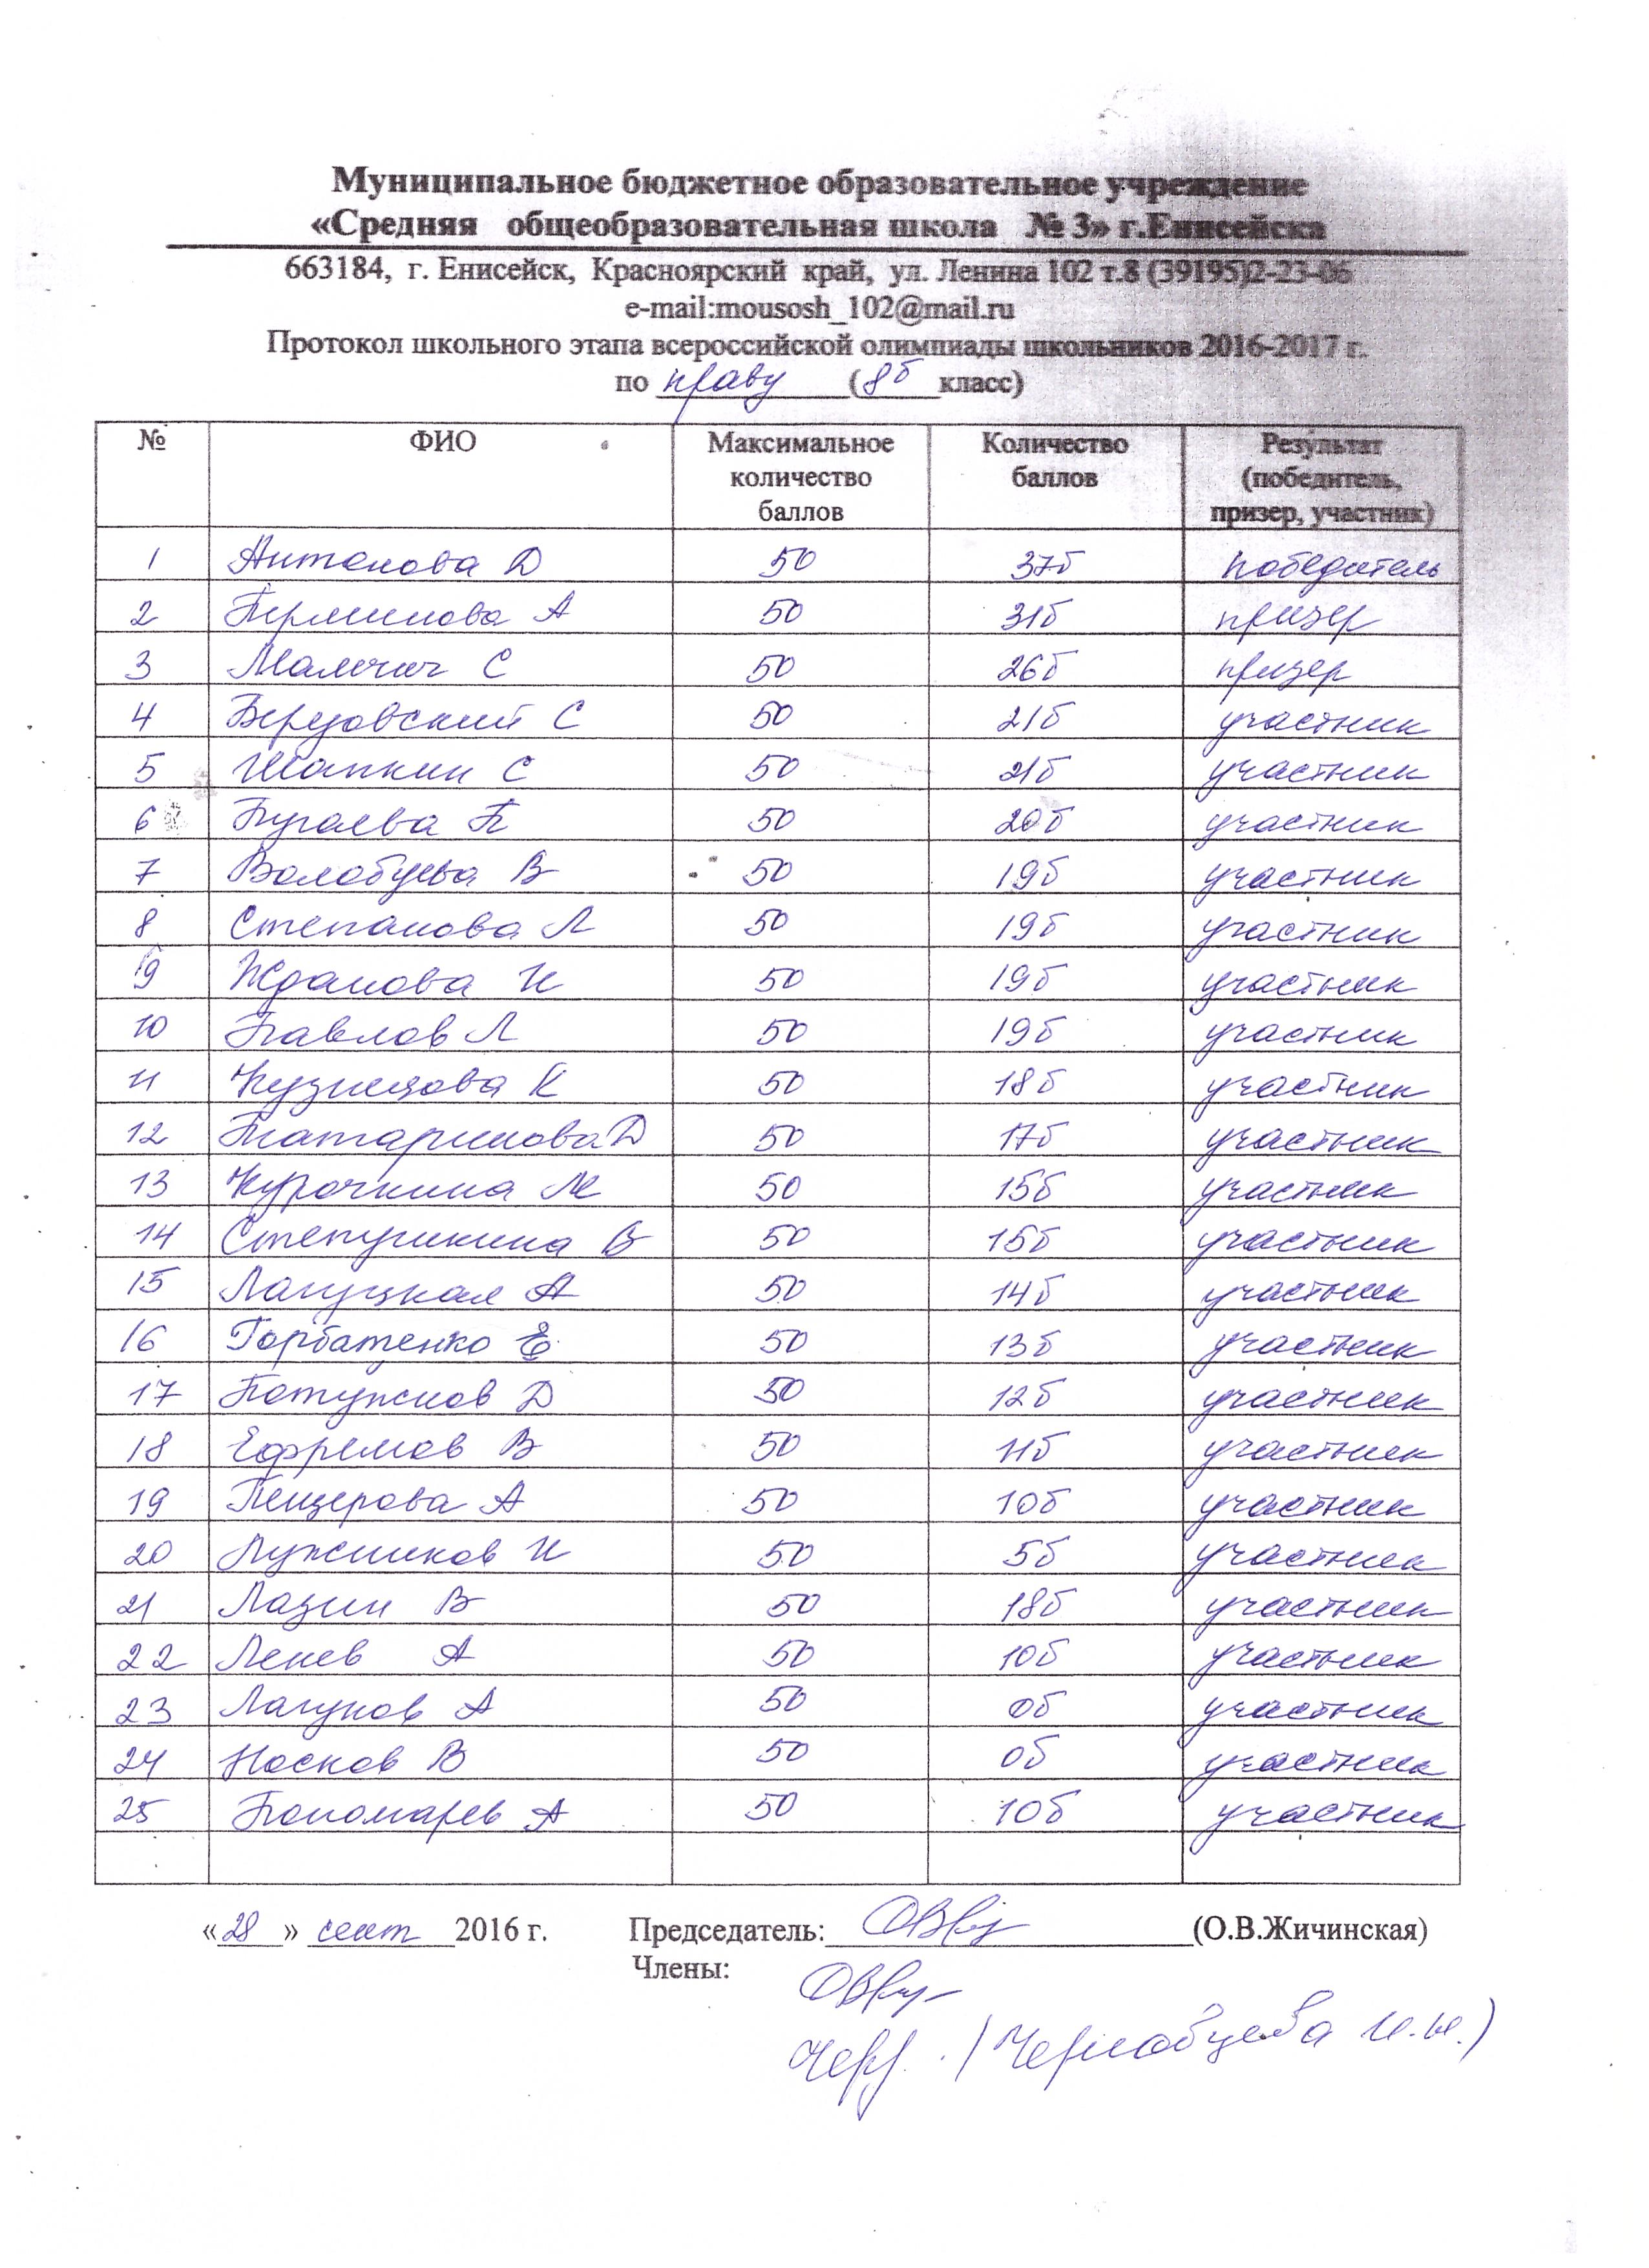 Муниципальное бюджетное образовательное учреждение
«Средняя общеобразовательная школа № 3» г.Енисейска
663184, г. Енисейск, Красноярский край, ул. Ленина 102 т.8 (39195)2-23-06
e-mail:mousosh_102@mail.ru
Протокол школьного этапа всероссийской олимпиады школьников 2016-2017 г.
по праву (8б класс)
№ ФИО Максимальное количество баллов Количество баллов Результат (победитель, призер, участник)
1 Антонова Д 50 37б победитель
2 Перминова А 50 31б призер
3 Мамчич С 50 26б призер
4 Березовский С 50 21б участник
5 Шапкин С 50 21б участник
6 Пугаева П 50 20б участник
7 Волобуева В 50 19б участник
8 Степанова Л 50 19б участник
9 Жданова И 50 19б участник
10 Павлов Л 50 19б участник
11 Кузнецова К 50 18б участник
12 Татаринова Д 50 17б участник
13 Курочкина М 50 15б участник
14 Степушкина В 50 15б участник
15 Лагуцкая А 50 14б участник
16 Горбатенко Е 50 13б участник
17 Потужнов Д 50 12б участник
18 Ефремов В 50 11б участник
19 Пещерова А 50 10б участник
20 Лужников И 50 5б участник
21 Лазин В 50 18б участник
22 Ленев А 50 10б участник
23 Лагунов А 50 0б участник
24 Носков В 50 0б участник
25 Пономарев А 50 10б участник
«28» сент 2016 г. Председатель: (О.В.Жичинская)
Члены:
(Чернобцева И.Н.)